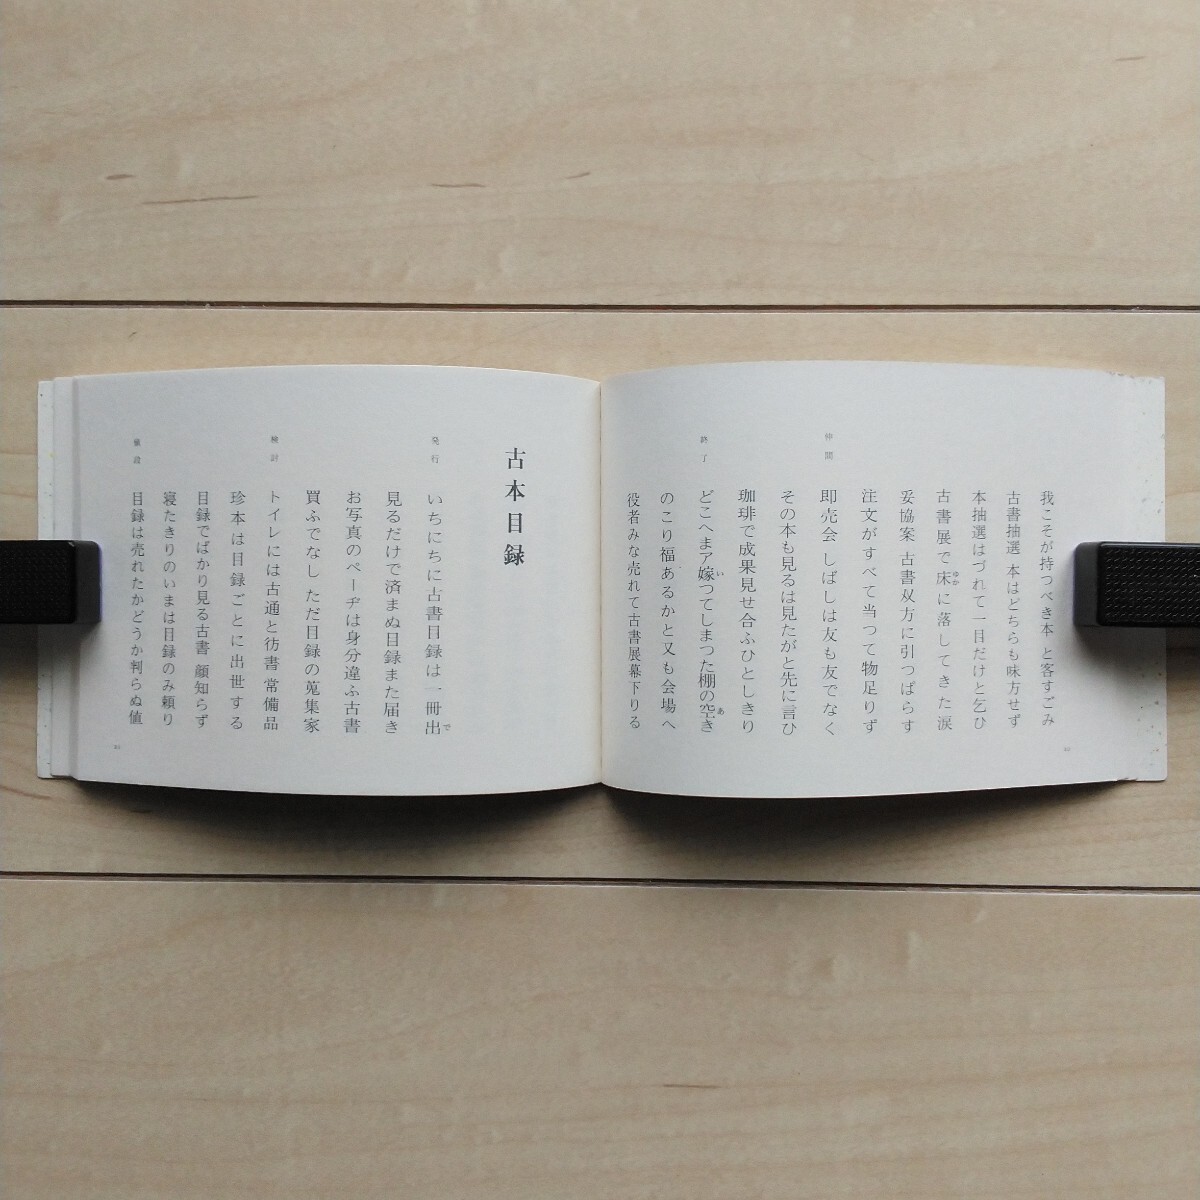 我こそが持つべき本 と客すごみ
古書抽選 本はどちらも味方せず
本抽選はづれて一目だけと乞ひ
古書展で床に落してきた涙
ゆか
妥協案 古書双方に引つぱらす
注文がすべて当つて物足りず
仲間
即売会 しばしは友も友でなく
その本も見るは見たがと先に言ひ
珈琲で成果見せ合ふひとしきり
終了
どこへまア嫁つてしまつた棚の空き
い
あ
のこり福あるかと又も会場へ
役者みな売れて古書展幕下りる
古本目録
発行
いちにちに古書目録は一冊出
で
見るだけで済まぬ目録また届き
お写真のページは身分違ふ古書
買ふでなし ただ目録の蒐集家
検討
トイレには古通と彷書 常備品
珍本は目録ごとに出世する
目録でばかり見る古書 顔知らず
寝たきりのいまは目録のみ頼り
値段
目録は売れたかどうか判らぬ値